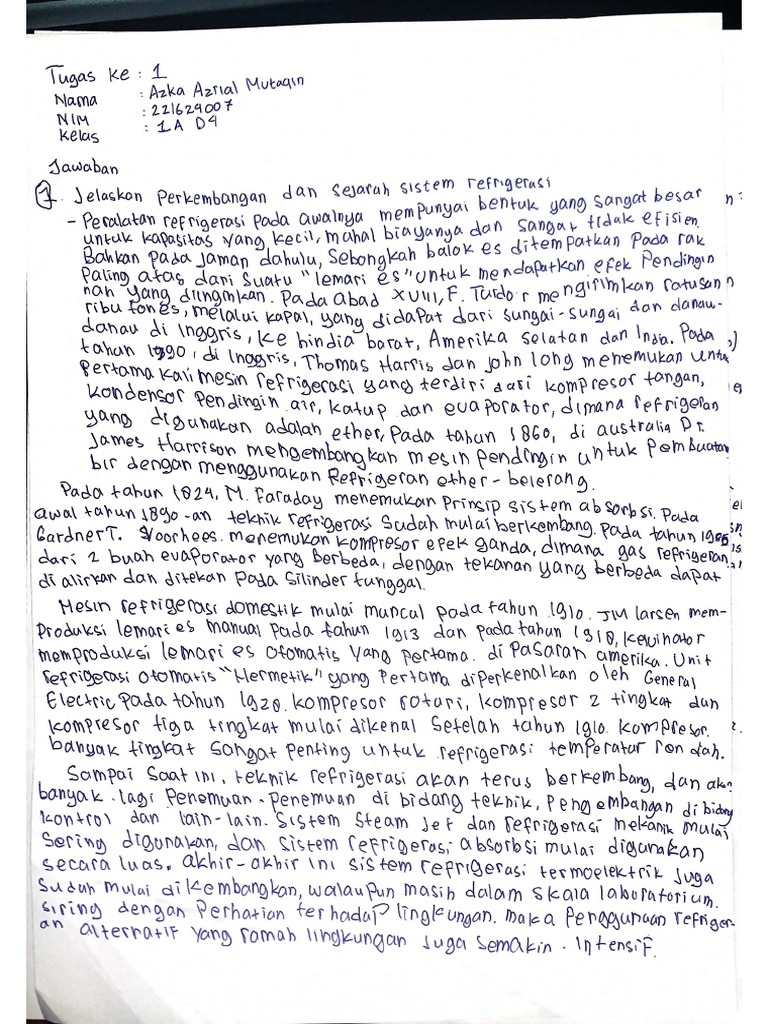 Tugas ke : 1
Nama : Azka Azrial Mutaqin
NIM : 221624007
Kelas : 1A D4
Jawaban
1. Jelaskan Perkembangan dan sejarah sistem refrigerasi
- Peralatan refrigerasi pada awalnya mempunyai bentuk yang sangat besar
untuk kapasitas yang kecil, mahal biayanya dan sangat tidak efisien.
Bahkan pada jaman dahulu, Sebongkah balok es ditempatkan pada rak
Paling atas dari suatu "lemari es" untuk mendapatkan efek Pendingin
nan yang diingmkan. Pada abad XVIII, F. Tudor mengirimkan ratusan
ribu tones, melalui kapal, yang didapat dari sungai-sungai dan danau-
danau di Inggris, ke hindia barat, Amerika selatan dan India. Pada
tahun 1990, di Inggris, Thomas Harris dan john long menemukan untuk
pertama kali mesin refrigerasi yang terdiri dari kompresor tangan,
kondensor pendingin air, katup dan evaporator, dimana refrigeran
yang digunakan adalah ether, Pada tahun 1860, di australia Dr.
James Harrison mengembangkan mesin pendingin untuk pembuatan
bir dengan menggunakan Refrigeran ether-belerang.
Pada tahun 1824, M. Faraday menemukan prinsip sistem absorbsi. Pada
awal tahun 1890-an teknik refrigerasi sudah mulai berkembang. pada tahun 1905
Gardner T. Voorhees. menemukan kompresor efek ganda, dimana gas refrigeran
dari 2 buah evaporator yang berbeda, dengan tekanan yang berbeda dapat
di alirkan dan ditekan pada silinder tunggal.
Mesin refrigerasi domestik mulai muncul pada tahun 1910. JM larsen mem-
Produksi lemari es manual pada tahun 1913 dan pada tahun 1918, kevinator
memproduksi lemari es otomatis yang pertama. di pasaran amerika. Unit
refrigerasi otomatis "Hermetik" yang pertama diperkenalkan oleh General
Electric pada tahun 1920. kompresor rotari, kompresor 2 tingkat dan
kompresor tiga tingkat mulai dikenal setelah tahun 1910. kompresor.
banyak tingkat sangat penting untuk refrigerasi temperatur rendah.
Sampai saat ini, teknik refrigerasi akan terus berkembang, dan akan
banyak lagi Penemuan-penemuan di bidang teknik, pengembangan di bidang
kontrol dan lain-lain. Sistem Steam Jet dan refrigerasi mekanik mulai
sering digunakan, dan sistem refrigerasi absorbsi mulai digunakan
secara luas. akhir-akhir ini sistem refrigerasi termoelektrik juga
sudah mulai dikembangkan, walaupun masih dalam skala laboratorium.
siring dengan perhatian terhadap lingkungan. maka penggunaan refriger-
an alternatif yang ramah lingkungan juga semakin. Intensif.